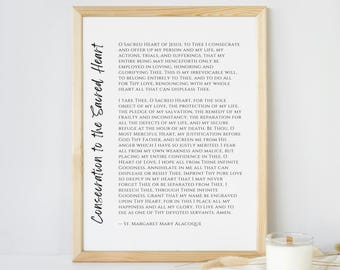 Consecration to the Sacred Heart
O Sacred Heart of Jesus, to Thee I consecrate
and offer up my person and my life, my
actions, trials, and sufferings, that my
entire being may henceforth only be
employed in loving, honoring and
glorifying Thee. This is my irrevocable will,
to belong entirely to Thee, and to do all
for Thy love, renouncing with my whole
heart all that can displease Thee.
I take Thee, O Sacred Heart, for the sole
object of my love, the protection of my life,
the pledge of my salvation, the remedy of my
frailty and inconstancy, the reparation for
all the defects of my life, and my secure
refuge at the hour of death. Be Thou, O
Most Merciful Heart, my justification before
God Thy Father, and screen me from His
anger which I have so justly merited. I fear
all from my own weakness and malice, but
placing my entire confidence in Thee, O
Heart of Love, I hope all from Thine infinite
Goodness. Annihilate in me all that can
displease or resist Thee. Imprint Thy pure love
so deeply in my heart that I may never
forget Thee or be separated from Thee. I
beseech Thee, through Thine infinite
Goodness, grant that my name be engraved
upon Thy Heart, for in this I place all my
happiness and all my glory, to live and to
die as one of Thy devoted servants. Amen.
— St. Margaret Mary Alacoque